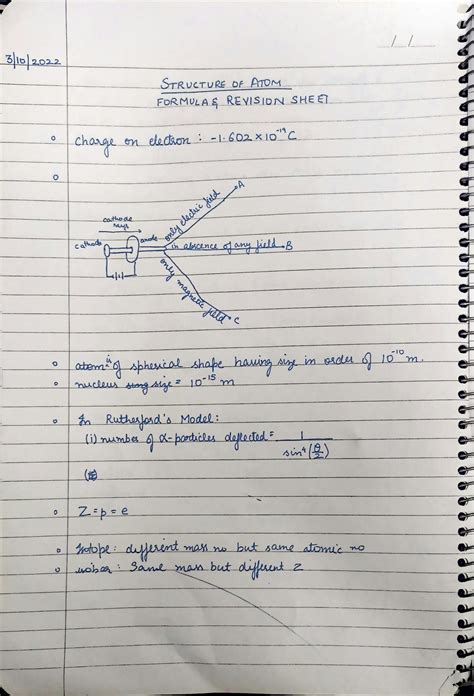 3/10/2022
STRUCTURE OF ATOM
FORMULA & REVISION SHEET
charge on electron : -1.602 × 10⁻¹⁹ C
A
only electric field
cathode rays
cathode
anode
in absence of any field B
only magnetic field
C
atom is of spherical shape having size in order of 10⁻¹⁰ m.
nucleus size = 10⁻¹⁵ m
In Rutherford's Model:
(i) number of α-particles deflected = 1 / sin⁴(θ/2)
Z = p = e
Isotope: different mass no but same atomic no
isobar: Same mass but different Z